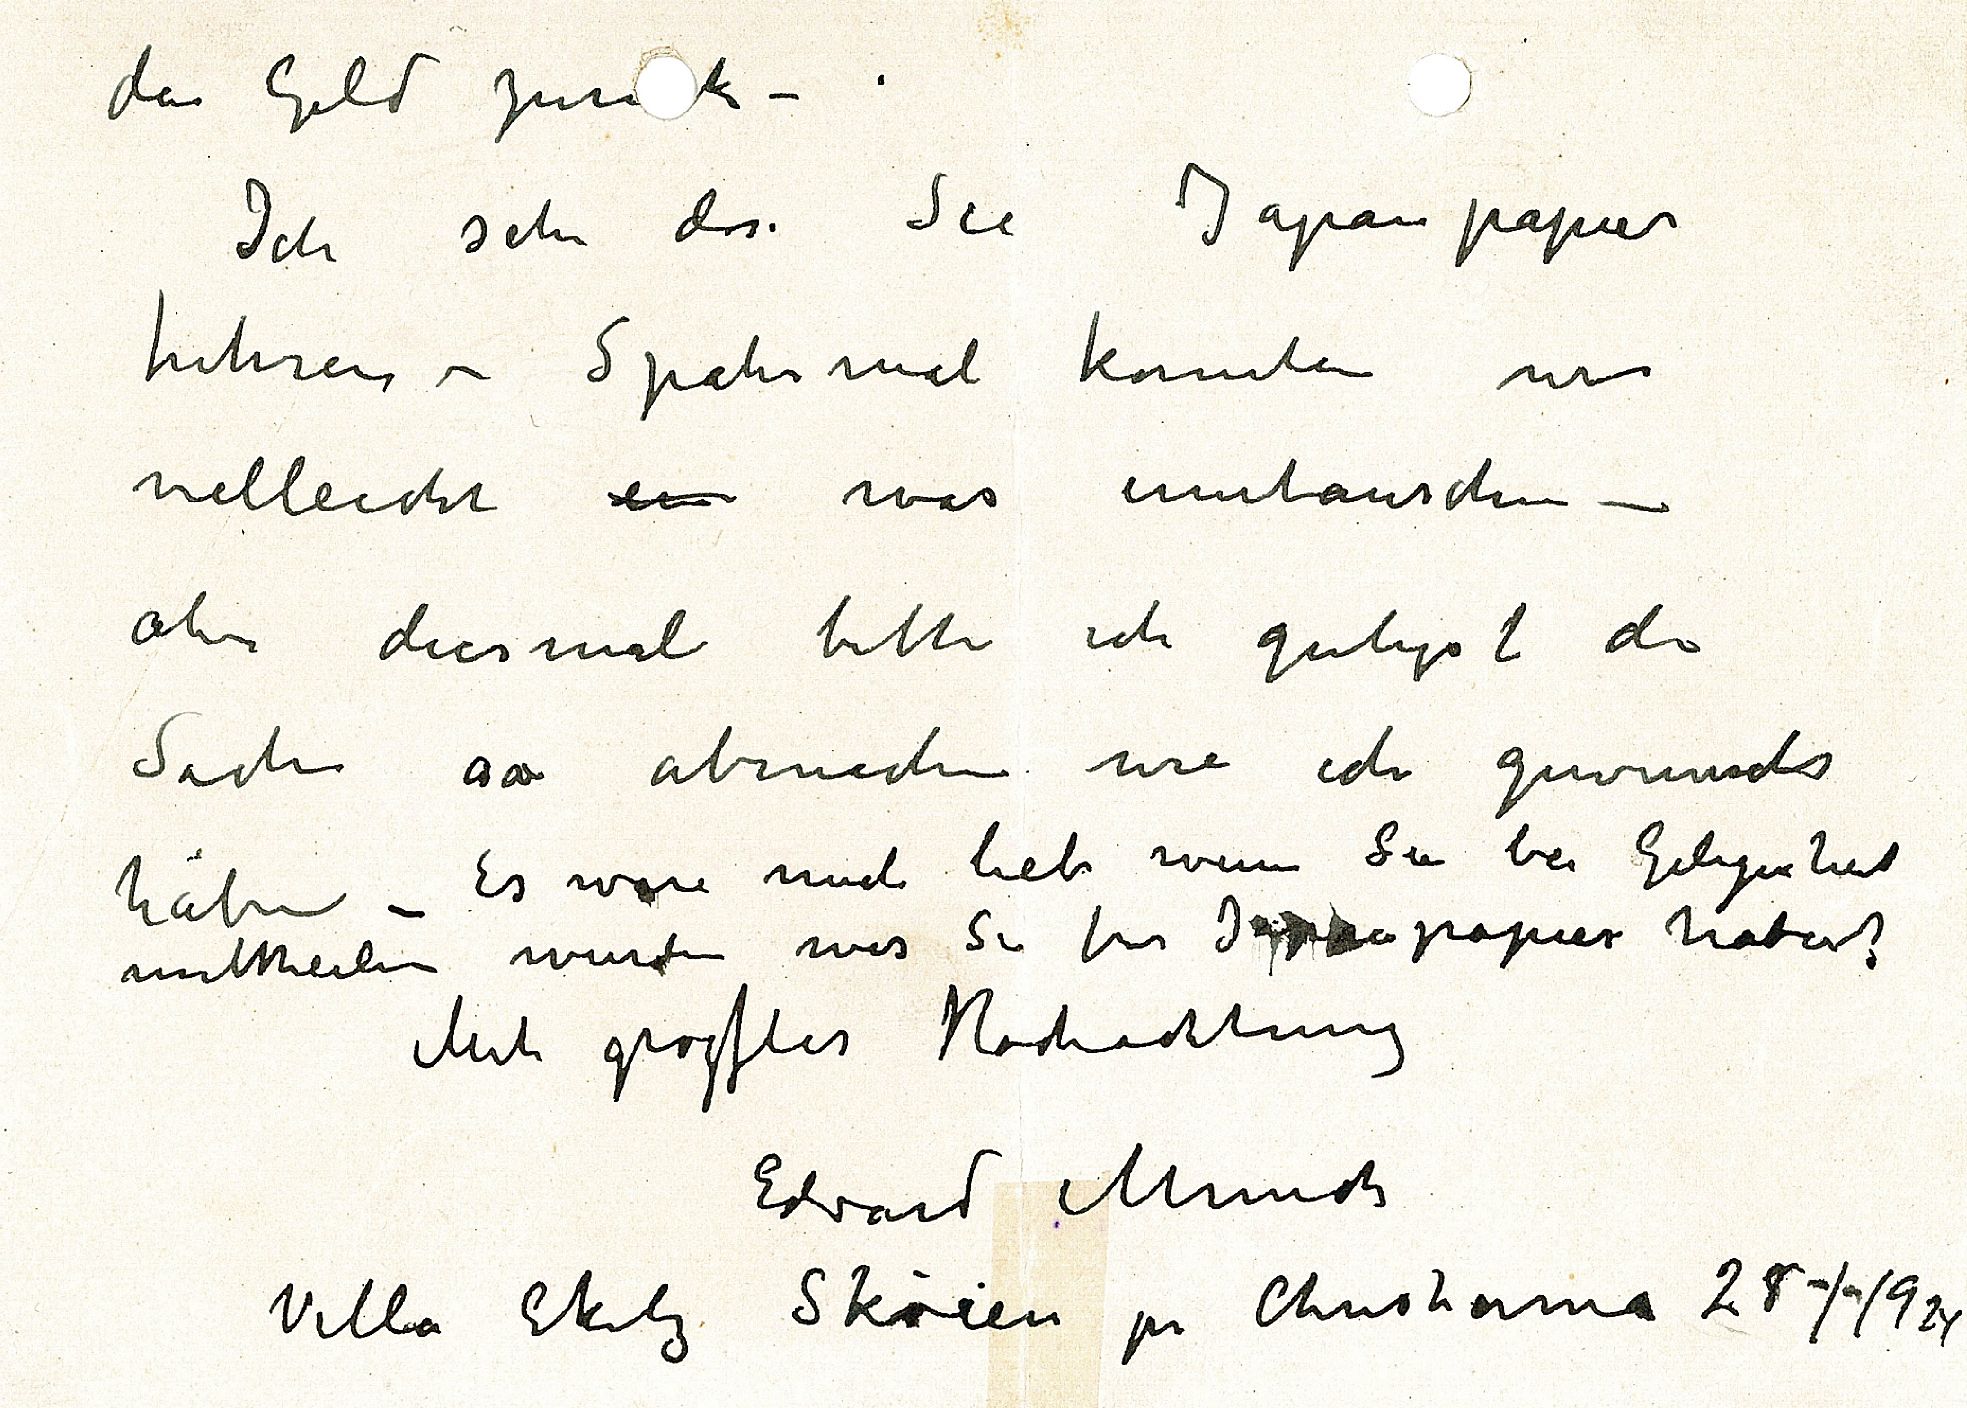 das Geld zurück –
Ich sehe dass Sie Japanpapier
fuhren – Spater mal konnten wir
vielleicht ein was umtauschen –
aber diesmal bitte ich gutigst die
Sache so abmachen wie ich gewunscht
häbe – Es ware mich lieb wenn Sie bei Gelegenheit
mittheilen wurden was Sie fur Japanpapier haben?
Mit grosster Hochachtung
Edvard Munch
Villa Ekely Sköien pr Christiania 28 1924